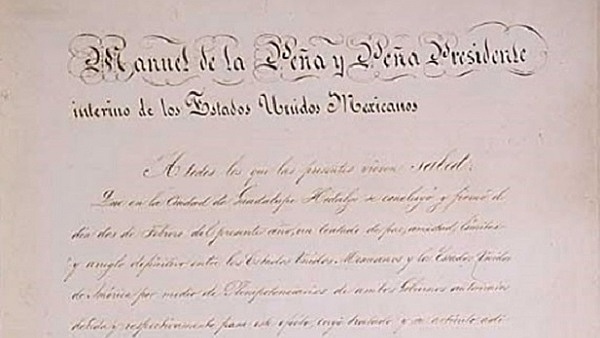 Manuel de la Peña y Peña Presidente
interino de los Estados Unidos Mexicanos
A todos los que las presentes vieren salud:
Que en la Ciudad de Guadalupe Hidalgo se concluyó y firmó el
dia dos de Febrero del presente año, un tratado de paz, amistad, límites
y arreglo definitivo entre los Estados Unidos Mexicanos y los Estados Unidos
de América por medio de Plenipotenciarios de ambos Gobiernos autorizados
debida y respectivamente para este efecto, cuyo tratado y su artículo adi